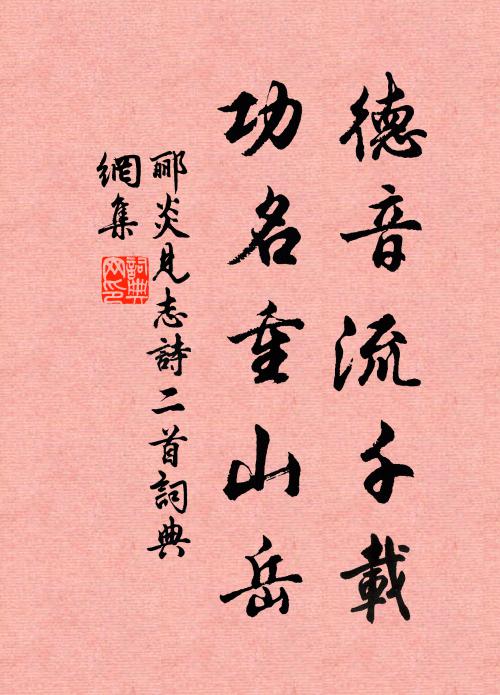 德音流千載
功名重山岳
酈炎見志詩二首詞典
網集
詞典網印